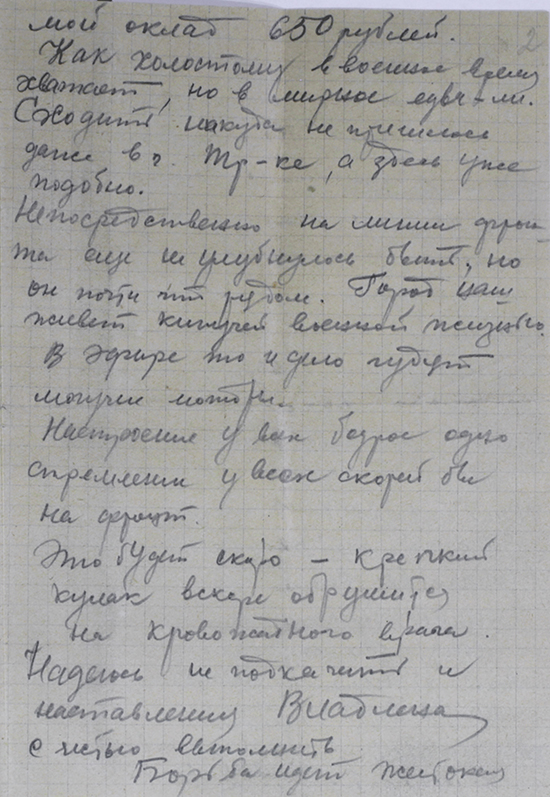 2
мой оклад 650 рублей.
Как холостому в военное время
хватает, но в мирное едва-ли.
Сходить никуда не пришлось
даже в г. Тр-ке, а здесь уже
подобно.
Непосредственно на линии фрон-
та еще не улыбнулось быть, но
он почти что рядом. Город наш
живет кипучей военной жизнью.
В эфире то и дело гудут
могучие моторы.
Настроение у всех бодрое одно
стремление у всех скорей бы
на фронт.
Это будет скоро – крепкий
кулак вскоре обрушится
на кровожатного врага.
Надеюсь не подкачать и
наставления
с честью выполнить
Борьба идет жестокая